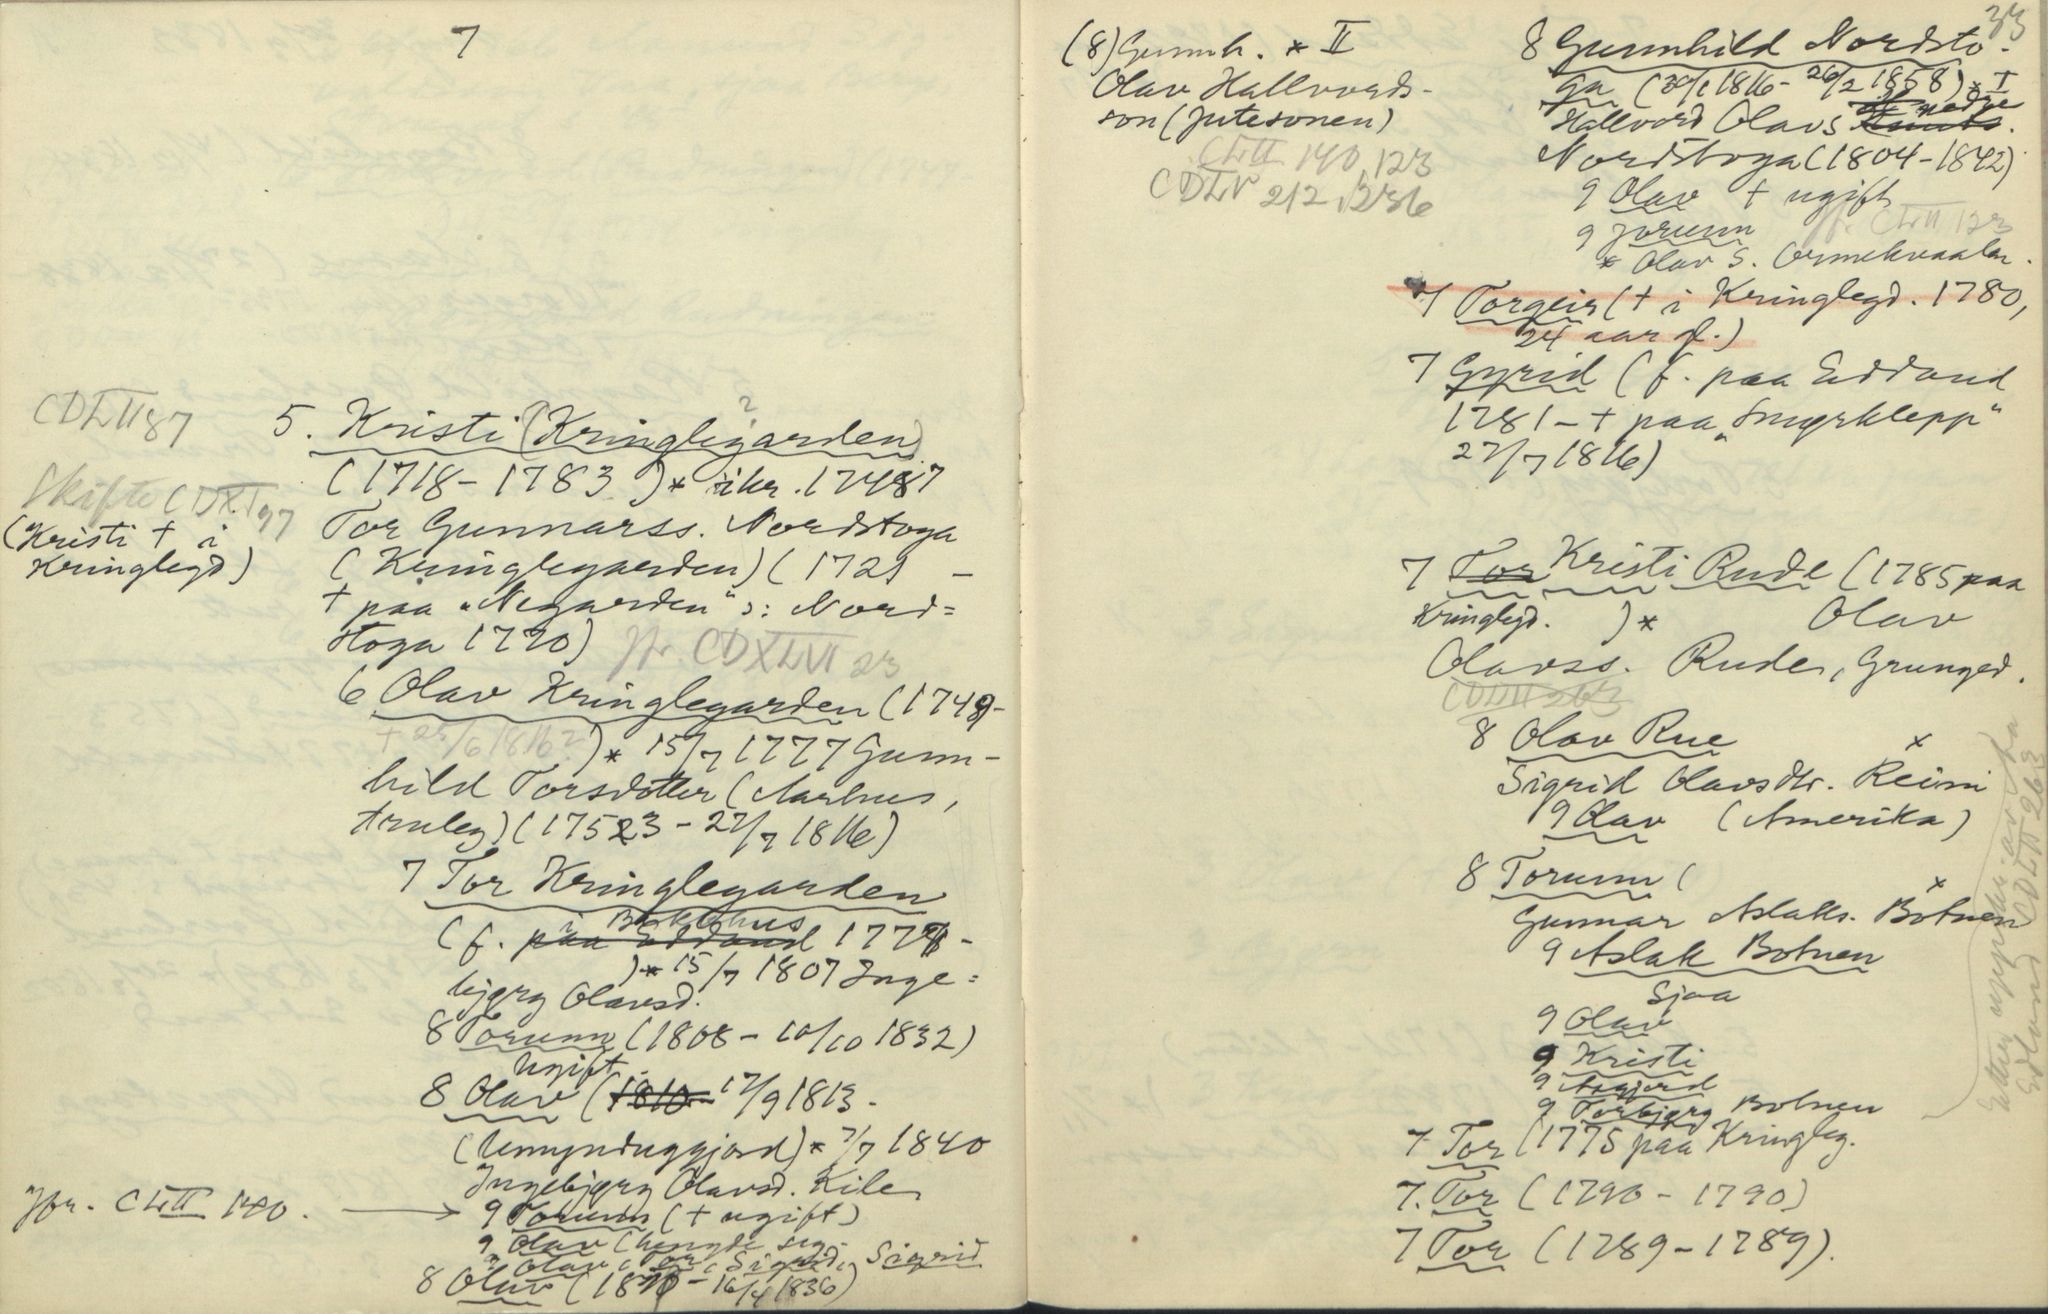 7
CDLII 87
Skifte CDXI 97
(Kristi + i
Kringlegd)
5. Kristi (Kringlegarden)
(1718 - 1783 ) * ikr. 1747
Tor Gunnarss. Nordstoga
(Kringlegarden) (1721 -
+ paa "Negarden" ɔ: Nord=
stoga 1790)
Jfr. CDXLVI 23
6 Olav Kringlegarden (1749-
+ 25/6 1816? ) * 15/7 1777 Gunn-
hild Torsdotter (Aarhus,
truleg) (1753 - 27/7 1816)
7 Tor Kringlegarden
i Bakkhus
(f. paa Edland 1778 -
) * 15/7 1807 Inge=
bjørg Olavsd.
8 Torunn (1808 - 10/10 1832)
Ugift.
8 Olav (1810 17/9 1813 -
(Umyndiggjord) * 7/7 1840
Ingebjørg Olavsd. Kile
Jfr. CLII 140.
9 Torunn (+ ugift)
9 Olav (hengde seg
9 Olav, Tor, Sigurd, Sigrid
8 Olav (1810 - 16/4 1836)
33
(8) Gunnh. * II
Olav Hallvords-
son (Jutesonen)
CLII 140, 123
CDLV 212, 236
8 Gunnhild Nordsto-
ga (30/1 1816 - 26/2 1858) * I
Hallvord Olavs nedre
Nordstoga (1804 - 1842)
9 Olav + ugift
9 Jorunn Jfr. CLII 123
* Olav S. Ormekvaalen.
7 Torgeir (+ i Kringlegd. 1780,
24 aar gl.)
7 Gyrid (f. paa Edland
1781 - + paa "Smørklepp"
27/7 1816)
7 Tor Kristi Rude (1785 paa
Kringlegd. ) * Olav
Olavss. Rude, Grunged.
CDLII 263
8 Olav Rue x
Sigrid Olavsdtr. Reimi
9 Olav (Amerika)
8 Torunn ( x
Gunnar Aslaks. Botnen
9 Aslak Botnen
Sjaa
9 Olav
9 Kristi
9 Asgjerd
9 Torbjørg Botnen
Etter uppskr. av
Edland CDLII 263
7 Tor (1775 paa Kringleg.
7. Tor (1790 - 1790)
7 Tor (1789 - 1789).